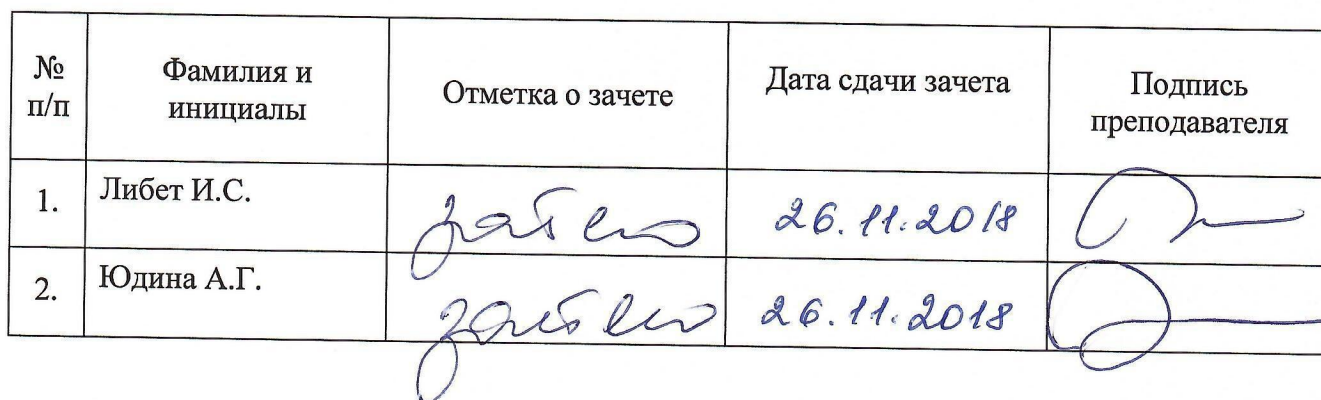 № п/п Фамилия и инициалы Отметка о зачете Дата сдачи зачета Подпись преподавателя
1. Либет И.С. 26.11.2018
2. Юдина А.Г. 26.11.2018